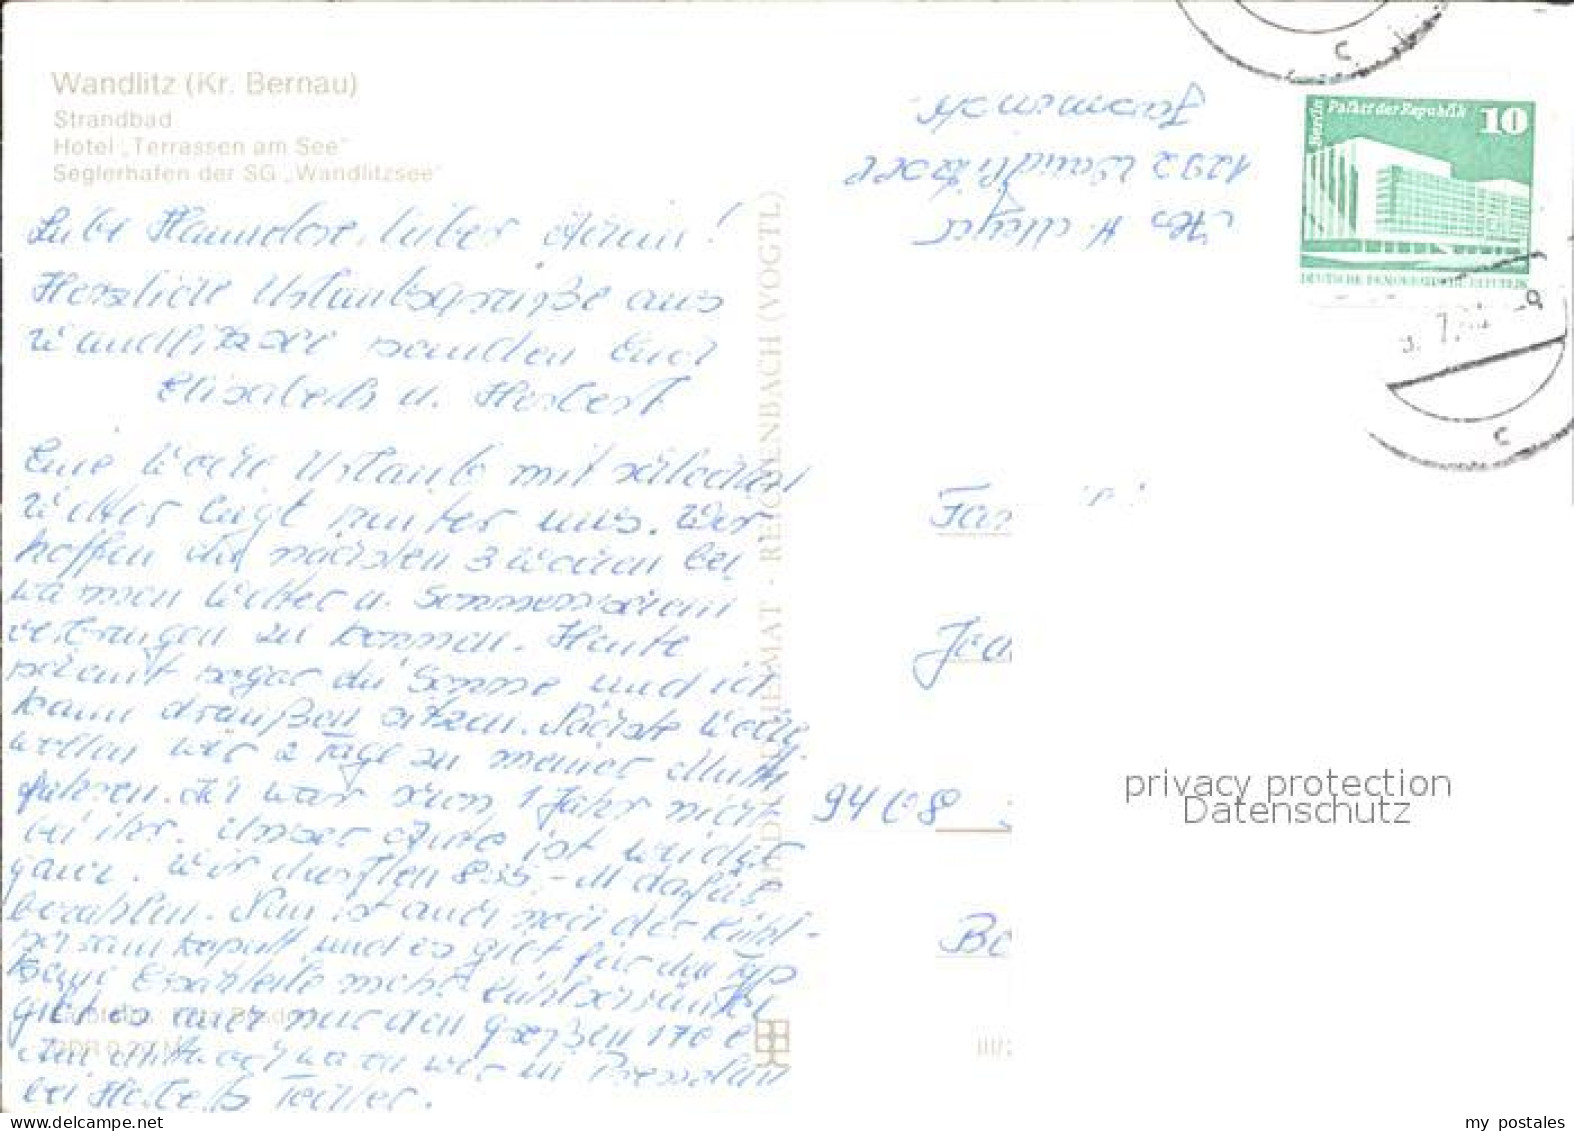 Wandlitz (Kr. Bernau)
Strandbad
Hotel „Terrassen am See"
Seglerhafen der SG „Wandlitzsee"
Liebe Hannelore, lieber Armin!
Herzliche Urlaubsgrüße aus
Wandlitzsee senden Euch
Elisabeth u. Herbert
Eine Woche Urlaub mit schlechten
Wetter liegt hinter uns. Wir
hoffen die nächsten 3 Wochen bei
warmen Wetter u. Sonnenschein
verbringen zu können. Heute
scheint sogar die Sonne und ich
kann draußen sitzen. Nächste Woche
wollen wir 2 Tage zu meiner Mutti
fahren. Ich war schon 1 Jahr nicht
bei ihr. Unser ist wieder
ganz. Wir durften 835,- M dafür
bezahlen. Nun ist auch noch der Kühl-
schrank kaputt und es gibt für den Typ
keine Ersatzteile mehr. Kühlschränke
gibt es aber nur den großen 170 l
waren wir in Dresden
bei Herberts Tochter.
BILD UND HEIMAT · REICHENBACH (VOGTL)
H. Meyer
1292 Wandlitzsee
Berlin Palast der Republik 10
DEUTSCHE DEMOKRATISCHE REPUBLIK
c
c
Fam
94 08
privacy protection
Datenschutz
my postales